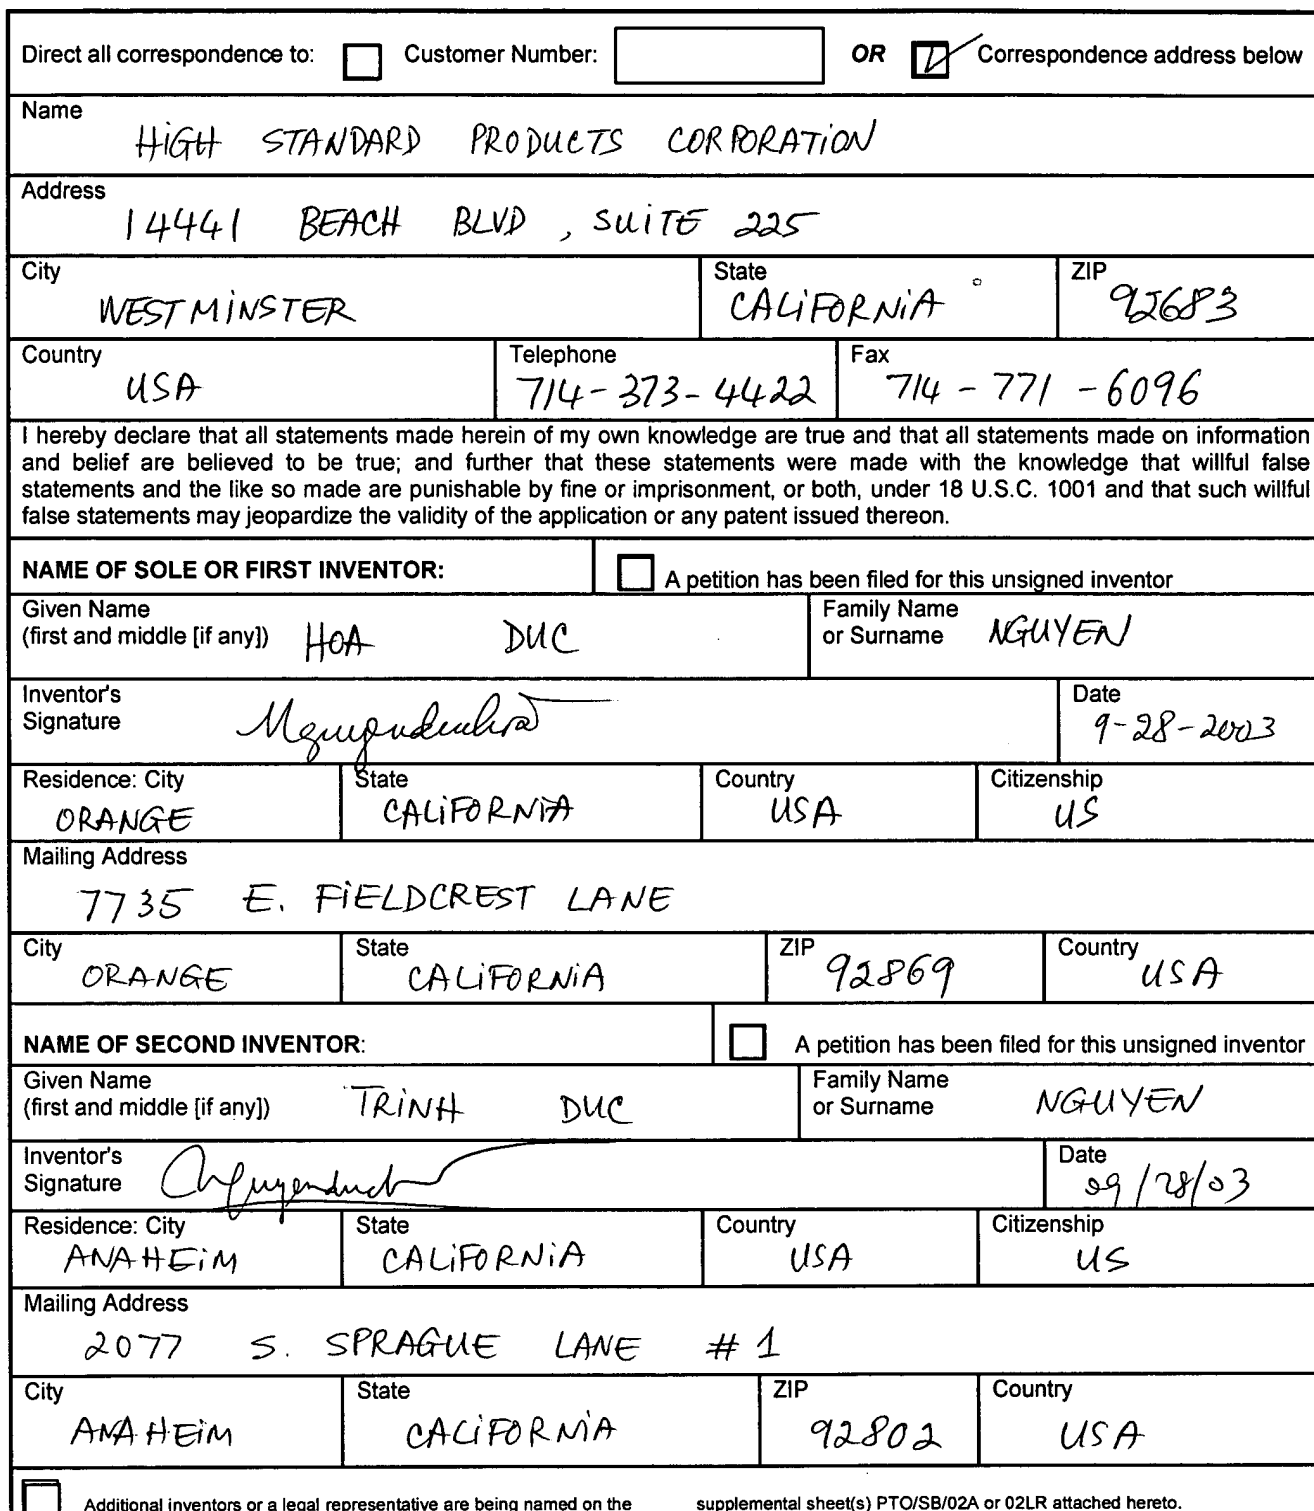 Direct all correspondence to: Customer Number: OR Correspondence address below
Name
HiGH STANDARD PRODUCTS CORPORATiON
Address
14441 BEACH BLVD , SUiTE 225
City State ZIP
WESTMiNSTER CALiFORNiA 92683
Country Telephone Fax
USA 714-373-4422 714-771-6096
I hereby declare that all statements made herein of my own knowledge are true and that all statements made on information
and belief are believed to be true; and further that these statements were made with the knowledge that willful false
statements and the like so made are punishable by fine or imprisonment, or both, under 18 U.S.C. 1001 and that such willful
false statements may jeopardize the validity of the application or any patent issued thereon.
NAME OF SOLE OR FIRST INVENTOR: A petition has been filed for this unsigned inventor
Given Name Family Name
(first and middle [if any]) HOA DUC or Surname NGUYEN
Inventor's Date
Signature 9-28-2003
Residence: City State Country Citizenship
ORANGE CALiFORNiA USA US
Mailing Address
7735 E. FiELDCREST LANE
City State ZIP Country
ORANGE CALiFORNiA 92869 USA
NAME OF SECOND INVENTOR: A petition has been filed for this unsigned inventor
Given Name Family Name
(first and middle [if any]) TRiNH DUC or Surname NGUYEN
Inventor's Date
Signature 09/28/03
Residence: City State Country Citizenship
ANAHEiM CALiFORNiA USA US
Mailing Address
2077 S. SPRAGUE LANE # 1
City State ZIP Country
ANAHEiM CALiFORNiA 92802 USA
Additional inventors or a legal representative are being named on the supplemental sheet(s) PTO/SB/02A or 02LR attached hereto.